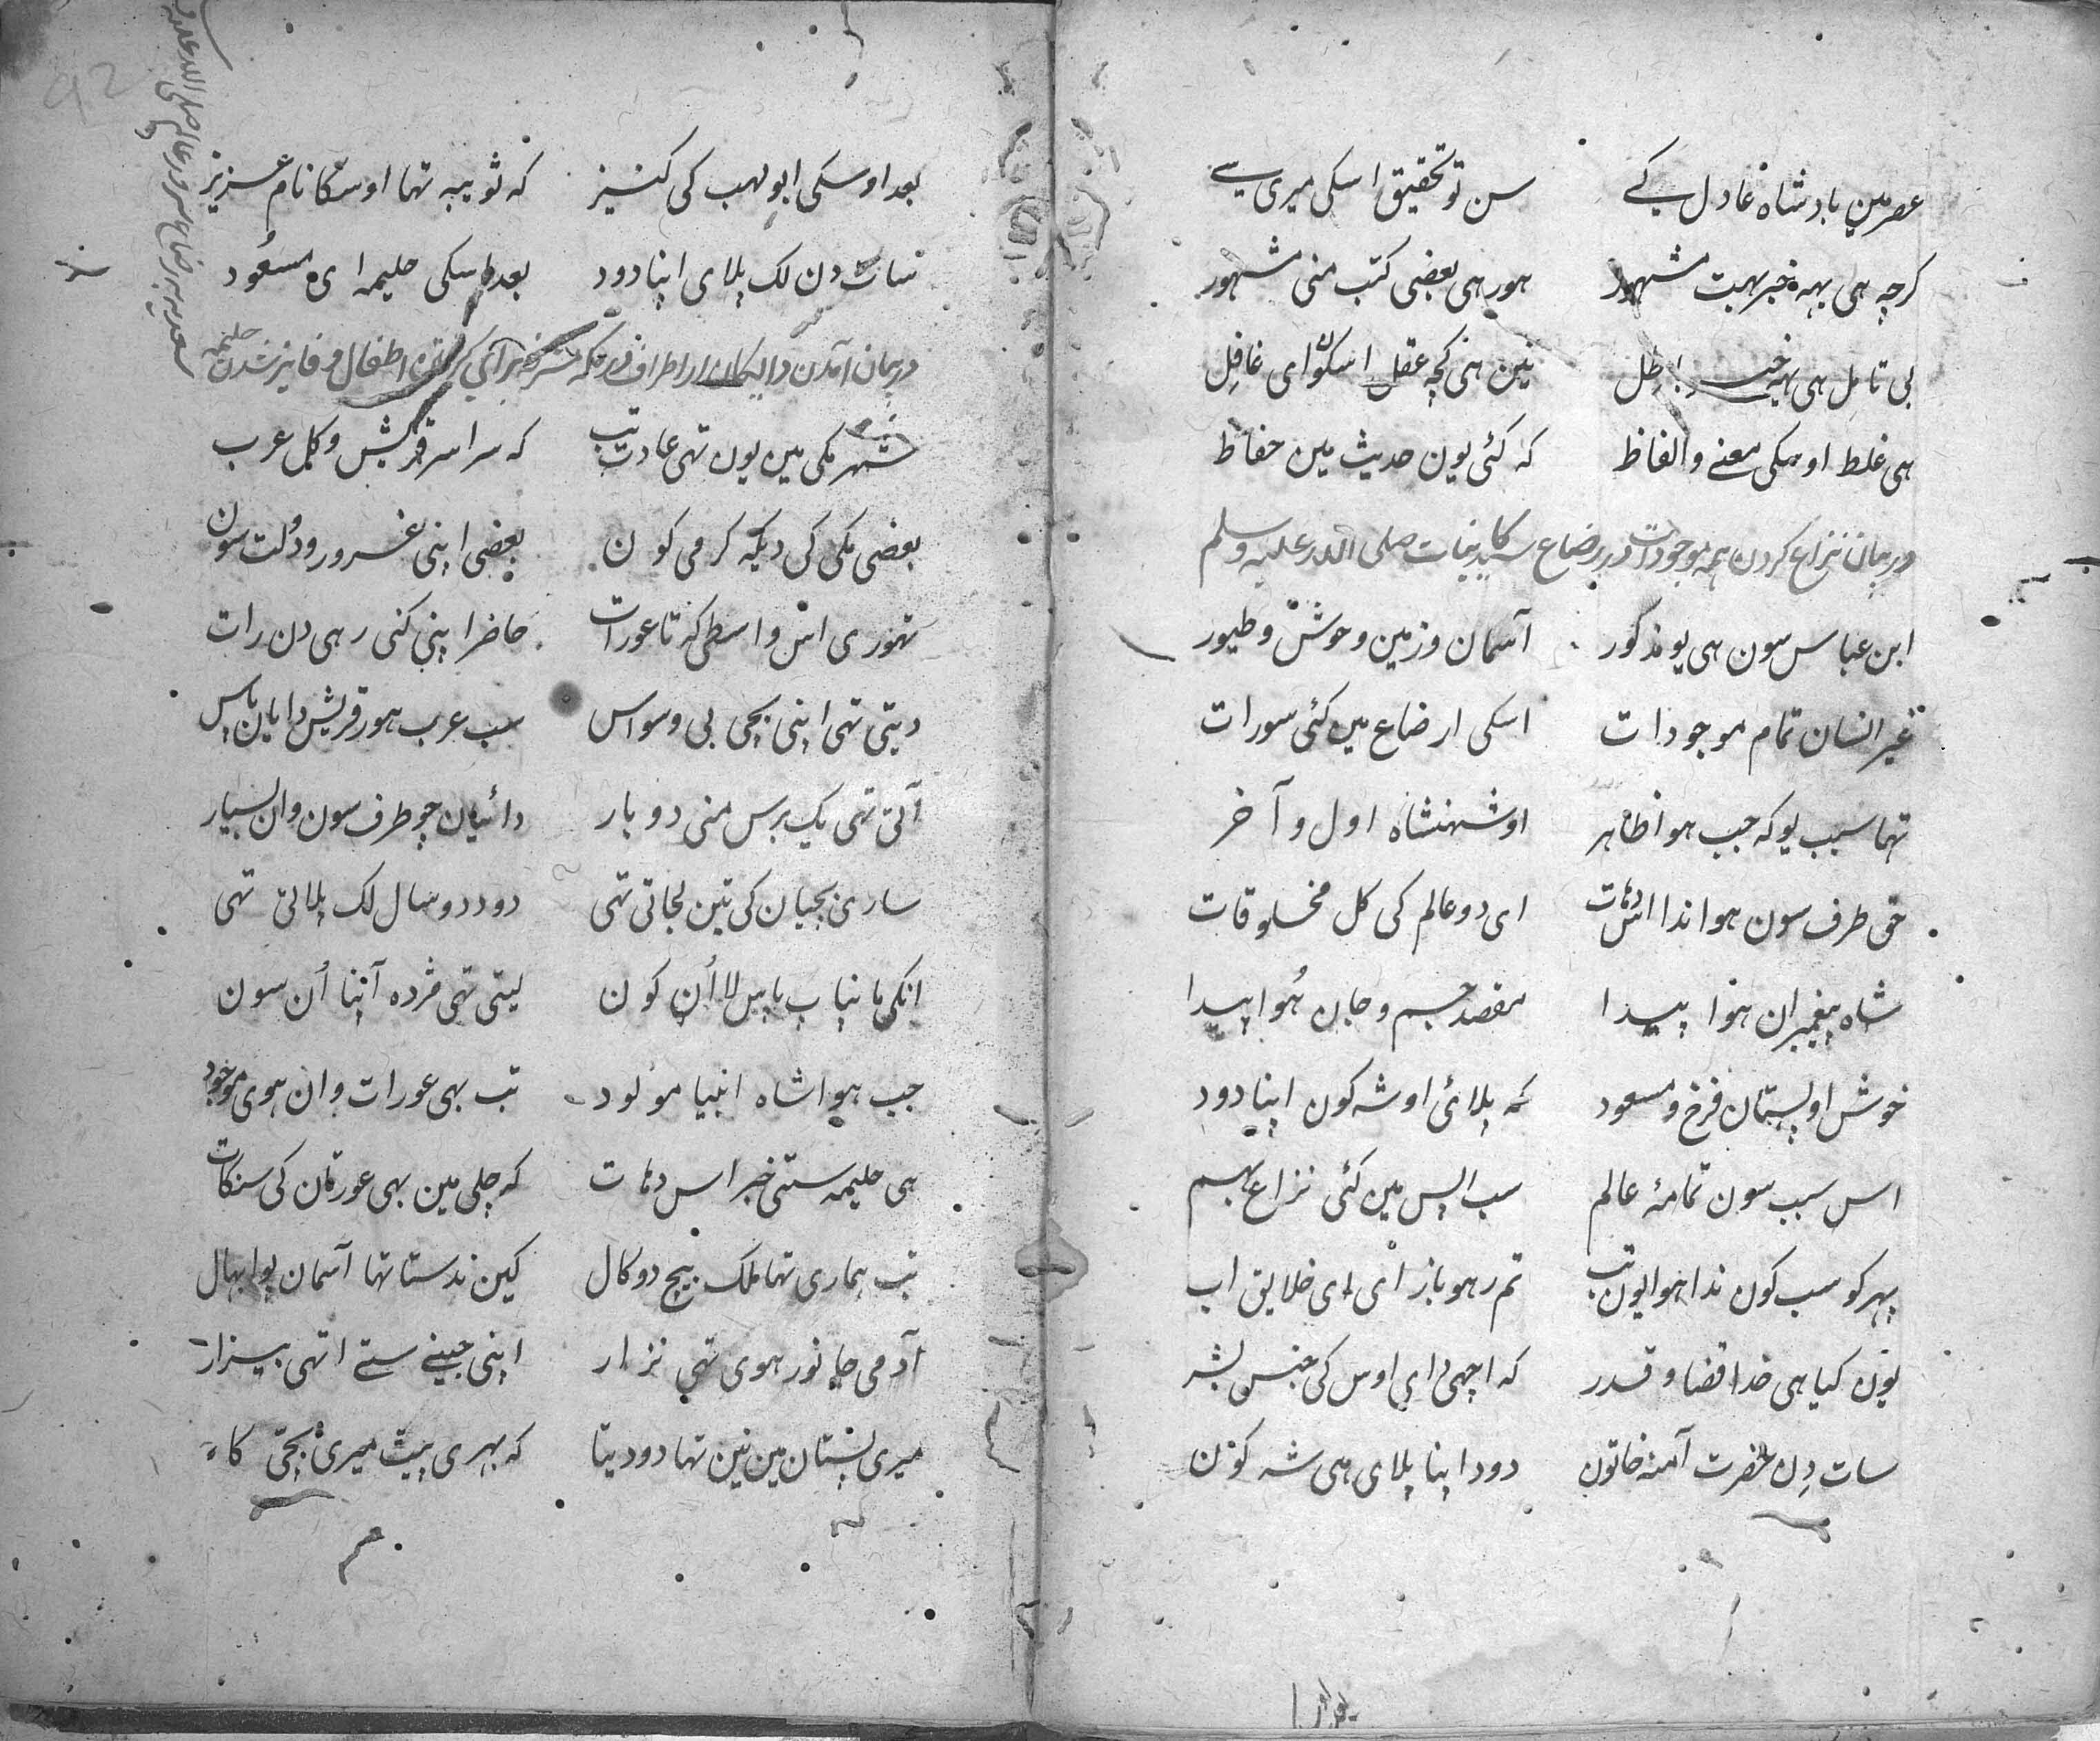 عصر مین بادشاہ عادل کے سن تو تحقیق اسکی میری سے
کرچہ ہی یہہ خبر بہت مشہور ہور ہی بعضی کتب منی مشہور
بی تامل ہی یہہ خبر باطل نین ہنی کچہ عقل اسکو ای غافل
ہی غلط اوسکی معنے و الفاظ کہ کئی یون حدیث مین حفاظ
در بیان نزاع کردن ہمہ موجودات در رضاع کاینات صلی اللہ علیہ وسلم
ابن عباس سون ہی یو مذکور آسمان و زمین و حوش و طیور
غیر انسان تمام موجودات اسکی ارضاع مین کئی سورات
تہا سبب یو کہ جب ہوا ظاہر او شہنشاہ اول و آخر
حق طرف سون ہوا ندا اس دہات ای دو عالم کی کل مخلوقات
شاہ پیغمبران ہوا پیدا مقصد جسم و جان ہوا پیدا
خوش او پستان فرخ و مسعود کہ پلائی او شہ کون اپنا دود
اس سبب سون تمامۂ عالم سب اپس مین کئی نزاع بہم
پہر کو سب کون ندا ہوا یون تب تم رہو باز ای خلایق اب
یون کیا ہی خدا قضا و قدر کہ اچہی دای اوس کی جنس بشر
سات دن حضرت آمنہ خاتون دود اپنا پلای ہی شہ کون
بعد اوسکی ابو لہب کی کنیز کہ ثویبہ تہا اوسکا نام عزیز
سات دن لک پلای اپنا دود بعد اسکی حلیمہ ای مسعود
در بیان آمدن دایکان از اطراف در مکہ مشرفہ برای کرفتن اطفال و فایز شدن حلیمہ
سعدیہ بہ رضاع سرور عالم صلی اللہ علیہ
شہر مکی مین یون تہی عادت تب کہ سراسر قریش و کل عرب
بعضی مکی کی دیکہ کرمی کون بعضی اپنی غرور دولت سون
تہوری اس واسطی کہ تا عورات حاضر اپنی کنی رہی دن رات
دیتی تہی اپنی بچی بی وسواس سب عرب ہور قریش دایان پاس
آتی تہی یک برس منی دو بار دائیان چو طرف سون وان بسیار
ساری بچیان کی تین لجاتی تہی دود دو سال لک پلاتی تہی
انکی ما نیاپ پاس لا ان کون لیتی تہی مژدہ آپنا ان سون
جب ہوا شاہ انبیا مولود تب بہی عورات وان ہوی موجود
ہی حلیمہ ستی خبر اس دہات کہ چلی مین بہی عورتان کی سنکات
تب ہماری تہا ملک بیچ دوکال کین ندستا تہا آسمان پو ابہال
آدمی جانور ہوی تہی نزار اپنی جینے ستے اتہی بیزار
میری پستان مین نین تہا دود یتا کہ بہری پیٹ میری بچی کا